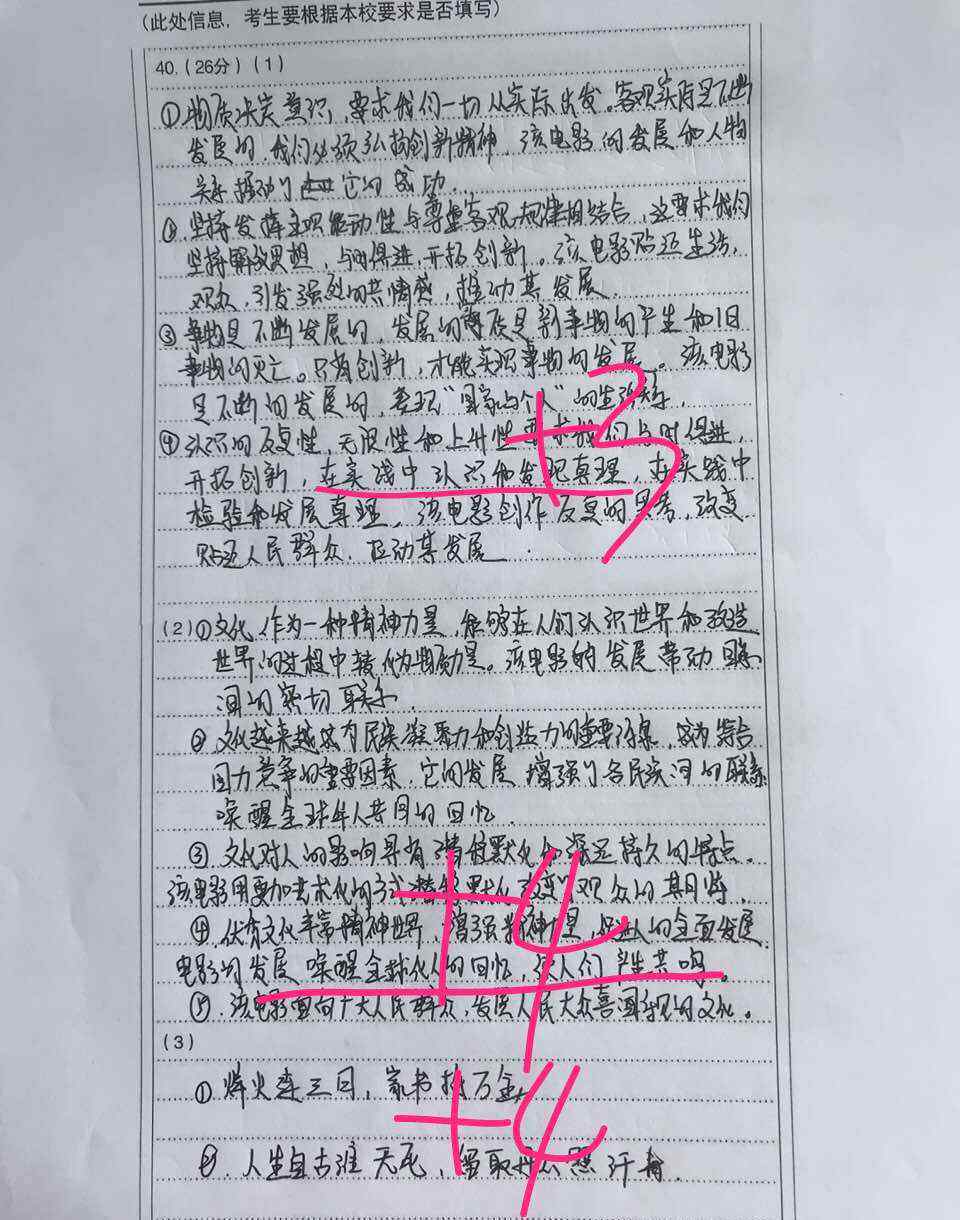 (此处信息,考生要根据本校要求是否填写)
40.(26分)(1)
①物质决定意识,要求我们一切从实际出发。客观实际是不断
发展的,我们必须弘扬创新精神,该电影的发展和人物
关系推动了它的成功.
②坚持发挥主观能动性与尊重客观规律相结合,这要求我们
坚持解放思想,与时俱进,开拓创新。该电影贴近生活,
观众,引发强烈的共情感,推动其发展.
③事物是不断发展的,发展的实质是新事物的产生和旧
事物的灭亡。只有创新,才能实现事物的发展。该电影
是不断的发展的,表现"国家与个人"的
④认识的反复性,无限性和上升性要求我们与时俱进,
开拓创新,在实践中认识和发现真理,在实践中
检验和发展真理,该电影创作反复的思考,改变
贴近人民群众,推动其发展.
(2)①文化作为一种精神力量,能够在人们认识世界和改造
世界的过程中转化为物质力量。该电影的发展带动国家
间的密切联系.
②文化越来越成为民族凝聚力和创造力的重要源泉,成为综合
国力竞争的重要因素,它的发展增强了各民族间的联系
唤醒全球华人共同的回忆.
③文化对人的影响具有潜移默化和深远持久的特点。
该电影用更加艺术化的方式潜移默化改变观众的期待.
④优秀文化丰富精神世界,增强精神力量,促进人的全面发展.
电影的发展唤醒全球化人的回忆,使人们产生共鸣。
⑤.该电影面向广大人民群众,发展人民大众喜闻乐见的文化。
(3)
①烽火连三月,家书抵万金.
②.人生自古谁无死,留取丹心照汗青.
+3
+4
+4